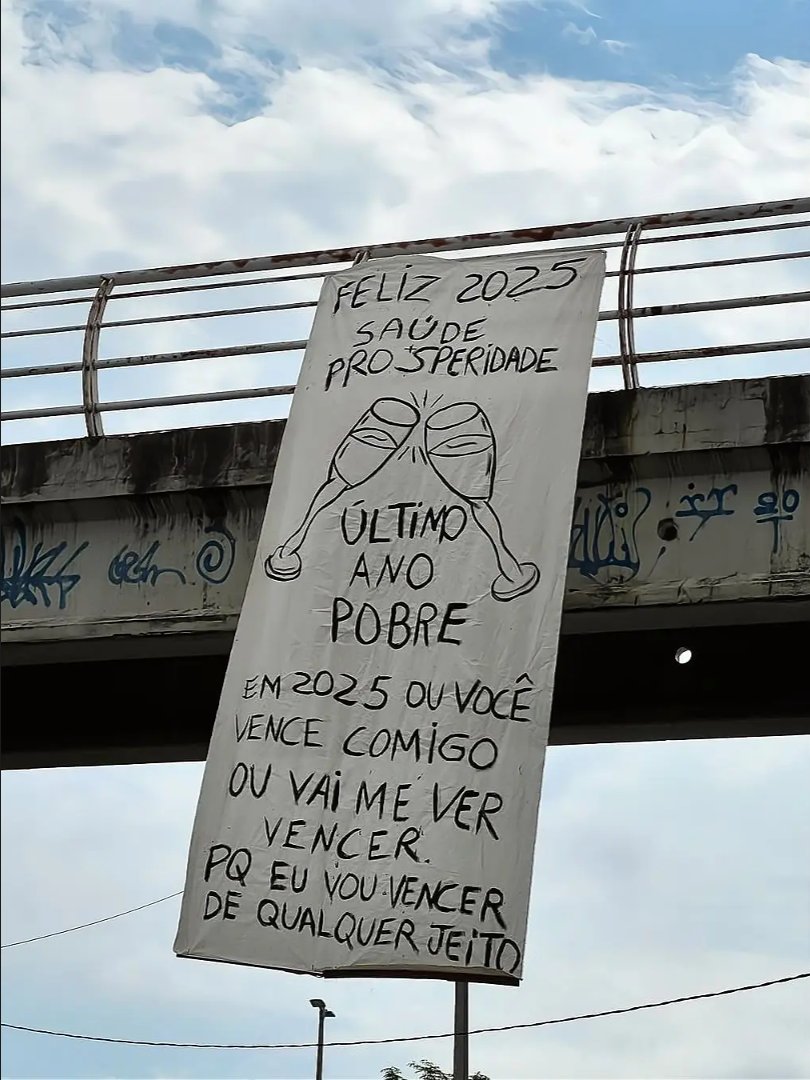 FELIZ 2025
SAÚDE
PROSPERIDADE
ÚLTIMO
ANO
POBRE
EM 2025 OU VOCÊ
VENCE COMIGO
OU VAI ME VER
VENCER.
PQ EU VOU VENCER
DE QUALQUER JEITO